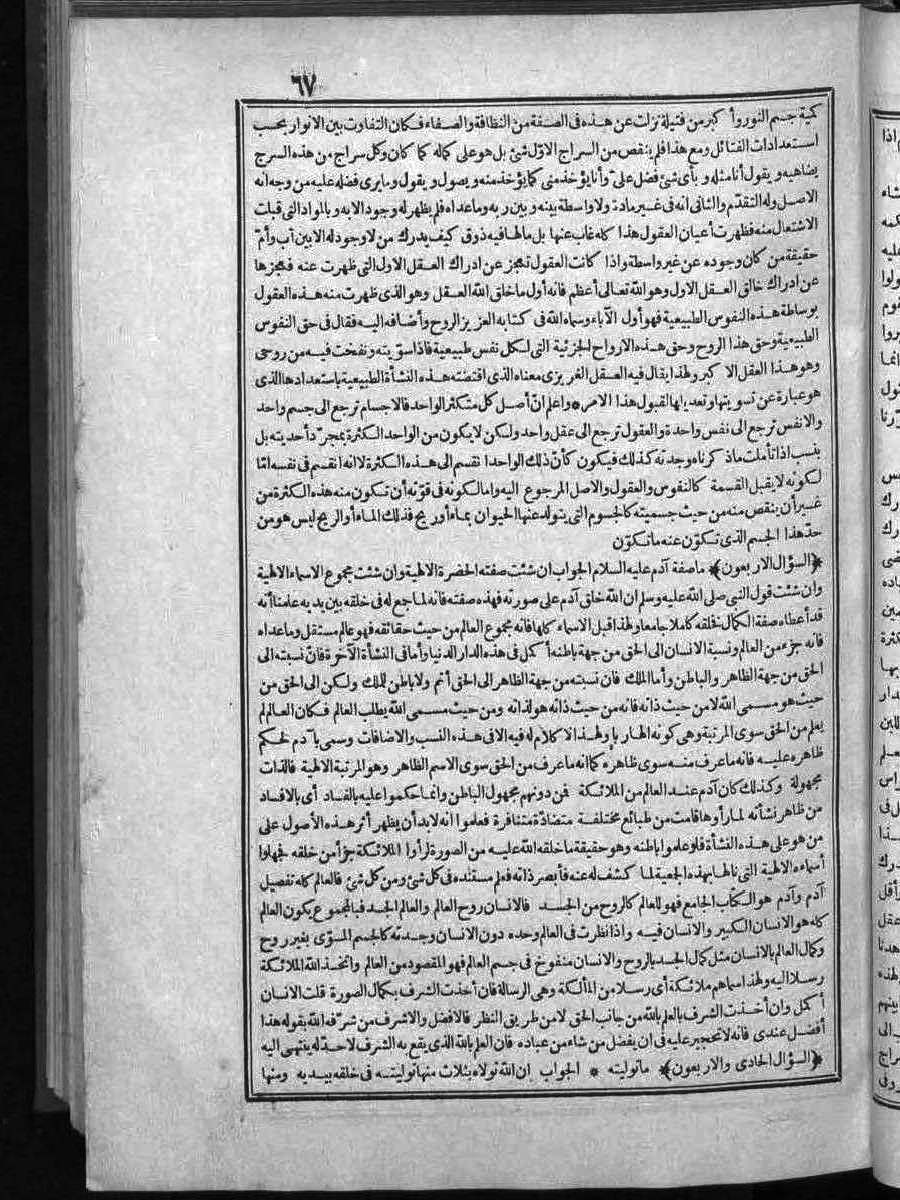 ٦٧
كمية جسم النور وأ كبر من فتيلة نزلت عن هذه فى الصفة من النظافة والصفاء فكان التفاوت بين الانوار بحسب
استعدادات الفتائل ومع هذا فلم ينقص من السراج الاوّل شئ بل هو على كماله كما كان وكل سراج من هذه السرج
يضاهيه ويقول أنا مثله و بأى شئ فضل علىّ وأنا يؤخذ منى كما يؤخذ منه ويصول و يقول وما يرى فضله عليه من وجه انه
الاصل وله التقدّم والثانى انه فى غير مادة ولا واسطة بينه و بين ربه وما عداه فلم يظهر له وجود الا به و بالمواد التى قبلت
الاشتعال منه فظهرت أعيان العقول هذا كله غاب عنها بل ما لها فيه ذوق كيف يدرك من لا وجود له الا بين أب وأمّ
حقيقة من كان وجوده عن غير واسطة واذا كانت العقول تعجز عن ادراك العقل الاول التى ظهرت عنه فعجزها
عن ادراك خالق العقل الاول وهو الله تعالى أعظم فانه أول ما خلق الله العقل وهو الذى ظهرت منه هذه العقول
بوساطة هذه النفوس الطبيعية فهو أول الآباء وسماه الله فى كتابه العزيز الروح وأضافه اليه فقال فى حق النفوس
الطبيعية وحق هذا الروح وحق هذه الارواح الجزئية التى لكل نفس طبيعية فاذا سوّيته ونفخت فيه من روحى
وهو هذا العقل الا كبر ولهذا يقال فيه العقل الغريزى معناه الذى اقتضته هذه النشأة الطبيعية باستعدادها الذى
هو عبارة عن تسويتها وتعديلها لقبول هذا الامر * واعلم انّ أصل كل متكثر الواحد فالاجسام ترجع الى جسم واحد
والانفس ترجع الى نفس واحدة والعقول ترجع الى عقل واحد ولكن لا يكون من الواحد الكثرة بمجرّد أحديته بل
بنسب اذا تأملت ماذ كرناه وجدته كذلك فيكون كأنّ ذلك الواحد انقسم الى هذه الكثرة لا انه انقسم فى نفسه امّا
لكونه لا يقبل القسمة كالنفوس والعقول والاصل المرجوع اليه واما لكونه فى قوّته أن تكون منه هذه الكثرة من
غير أن ينقص منه من حيث جسميته كالجسوم التى يتولد عنها الحيوان بماء أو ريح فذلك الماء أو الريح ليس هو من
حدّ هذا الجسم الذى تكوّن عنه ما تكوّن
﴿السؤال الاربعون﴾ ما صفة آدم عليه السلام الجواب ان شئت صفته الحضرة الالهية وان شئت مجموع الاسماء الالهية
وان شئت قول النبى صلى الله عليه وسلم ان الله خلق آدم على صورته فهذه صفته فانه لما جمع له فى خلقه بين يديه علمنا أنه
قد أعطاه صفة الكمال فخلقه كاملا جامعا ولهذا قبل الاسماء كلها فانه مجموع العالم من حيث حقائقه فهو عالم مستقل وما عداه
فانه جزء من العالم ونسبة الانسان الى الحق من جهة باطنه أ كمل فى هذه الدار الدنيا وأما فى النشأة الآخرة فانّ نسبته الى
الحق من جهة الظاهر والباطن وأما الملك فان نسبته من جهة الظاهر الى الحق أتم ولا باطن للملك ولكن الى الحق من
حيث هو مسمى الله لا من حيث ذاته فانه من حيث ذاته هو لذاته ومن حيث مسمى الله يطلب العالم فكان العالم لم
يعلم من الحق سوى المرتبة وهى كونه الها ربا ولهذا لا كلام له فيه الا فى هذه النسب والاضافات وسمى بآدم لحكم
ظاهره عليه فانه ما عرف منه سوى ظاهره كما انه ما عرف من الحق سوى الاسم الظاهر وهو المرتبة الالهية فالذات
مجهولة وكذلك كان آدم عند العالم من الملائكة فمن دونهم مجهول الباطن وانما حكموا عليه بالفساد أى بالافساد
من ظاهر نشأته لما رأوها قامت من طبائع مختلفة متضادّة متنافرة فعلموا انه لا بد أن يظهر أثر هذه الأصول على
من هو على هذه النشأة فلو علموا باطنه وهو حقيقة ما خلقه الله عليه من الصورة لرأوا الملائكة جزأ من خلقه فجهلوا
أسماءه الالهية التى نالها بهذه الجمعية لما كشف له عنه فأبصر ذاته فعلم مستنده فى كل شئ ومن كل شئ فالعالم كله تفصيل
آدم وآدم هو الكتاب الجامع فهو للعالم كالروح من الجسد فالانسان روح العالم والعالم الجسد فبالمجموع يكون العالم
كله هو الانسان الكبير والانسان فيه واذا نظرت فى العالم وحده دون الانسان وجدته كالجسم المسوّى بغير روح
وكمال العالم بالانسان مثل كمال الجسد بالروح والانسان منفوخ فى جسم العالم فهو المقصود من العالم واتخذ الله الملائكة
رسلا اليه ولهذا سماهم ملائكة أى رسلا من المألكة وهى الرسالة فان أخذت الشرف بكمال الصورة قلت الانسان
أ كمل وان أخذت الشرف بالعلم بالله من جانب الحق لا من طريق النظر فالافضل والاشرف من شرّفه الله بقوله هذا
أفضل عندى فانه لا تحجير عليه فى ان يفضل من شاء من عباده فان العلم بالله الذى يقع به الشرف لا حدّ له ينتهى اليه
﴿السؤال الحادى والاربعون﴾ ما توليته * الجواب ان الله تولاه بثلاث منها توليته فى خلقه بيديه ومنها